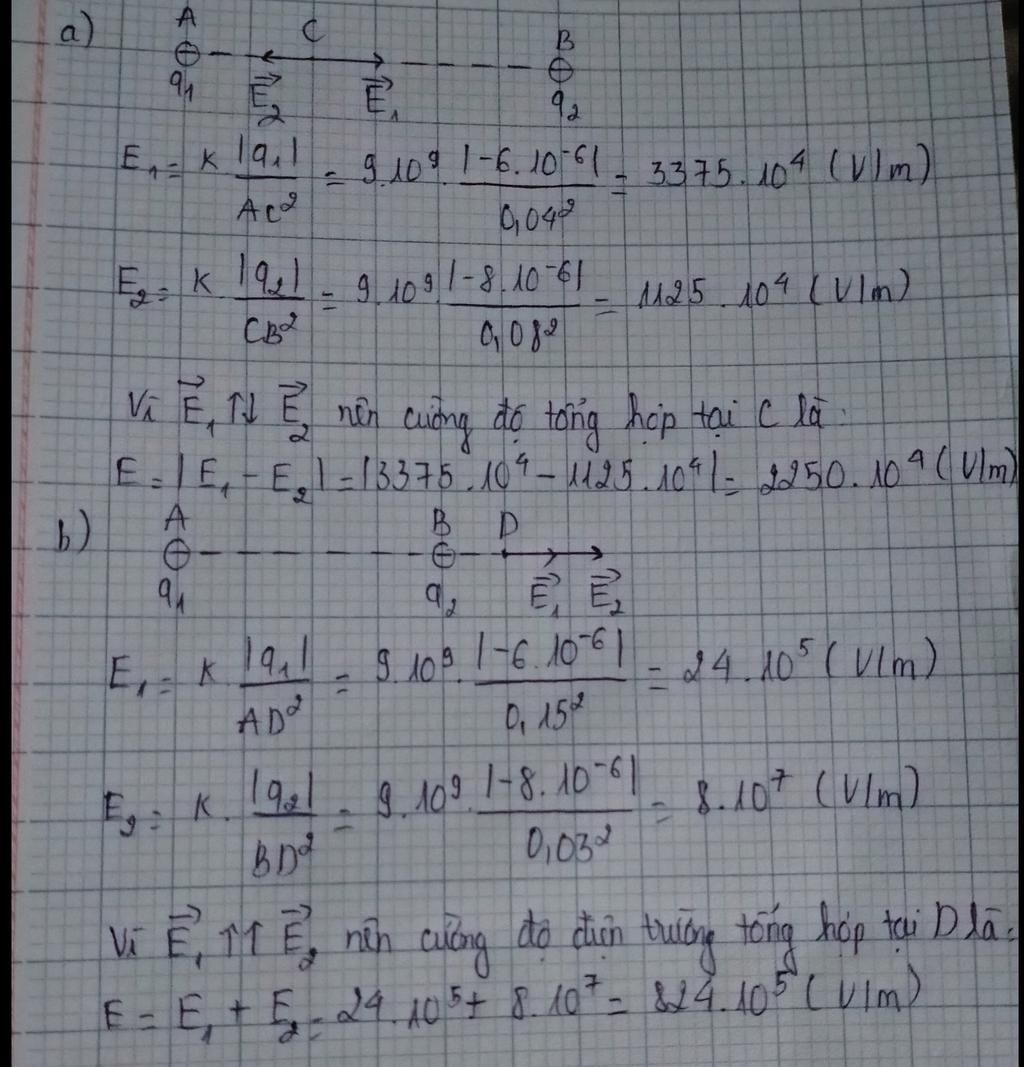 a) A C B
q₁ E⃗₂ E⃗₁ q₂
E₁ = k |q₁|/AC² = 9.10⁹. |-6.10⁻⁶|/0,04² = 3375.10⁴ (V/m)
E₂ = k |q₂|/CB² = 9.10⁹. |-8.10⁻⁶|/0,08² = 1125.10⁴ (V/m)
Vì E⃗₁ ↑↓ E⃗₂ nên cường độ tổng hợp tại C là:
E = |E₁ - E₂| = |3375.10⁴ - 1125.10⁴| = 2250.10⁴ (V/m)
b) A B D
q₁ q₂ E⃗₁ E⃗₂
E₁ = k. |q₁|/AD² = 9.10⁹. |-6.10⁻⁶|/0,15² = 24.10⁵ (V/m)
E₂ = k. |q₂|/BD² = 9.10⁹. |-8.10⁻⁶|/0,03² = 8.10⁷ (V/m)
Vì E⃗₁ ↑↑ E⃗₂ nên cường độ điện trường tổng hợp tại D là:
E = E₁ + E₂ = 24.10⁵ + 8.10⁷ = 824.10⁵ (V/m)